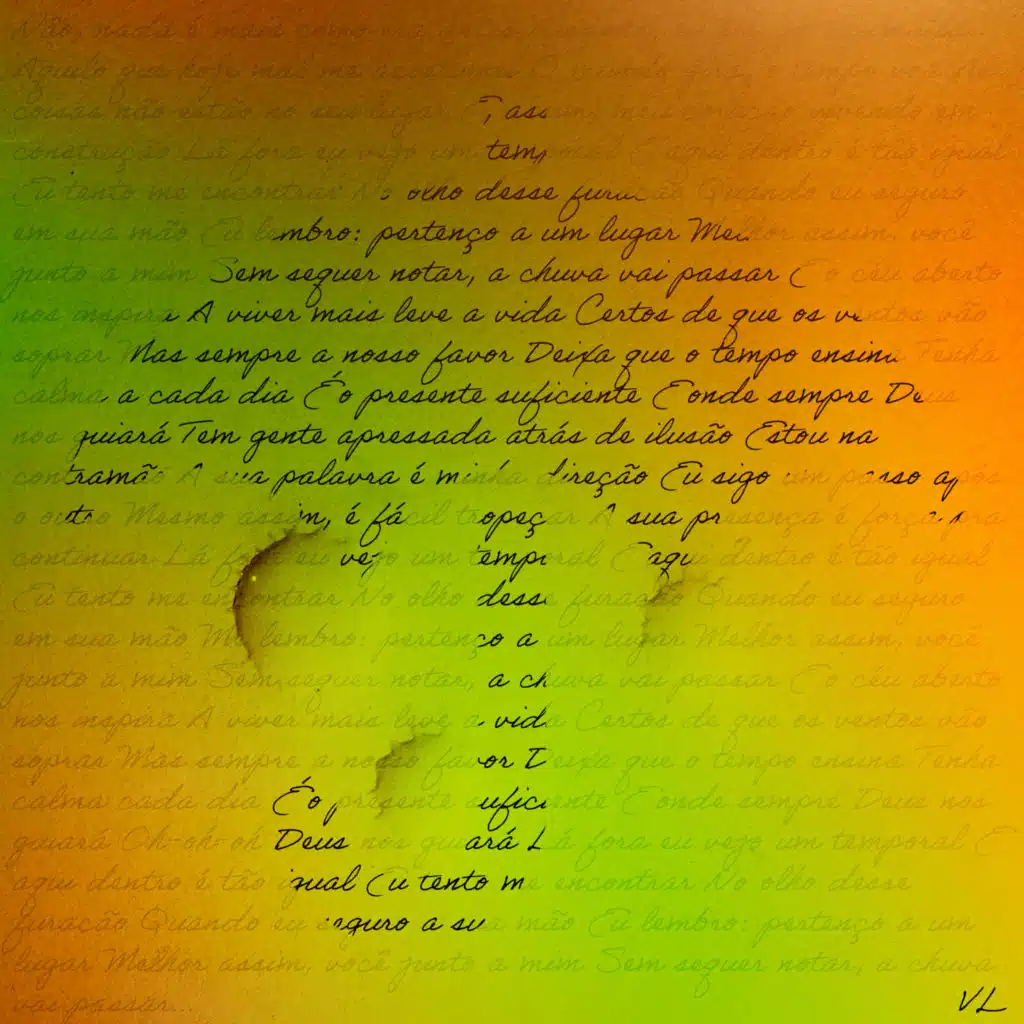 Não, nada é mais como era
Aquilo que hoje mal me O mundo gira, o tempo voa As
coisas não estão no seu lugar E, assim, meu coração vivendo em
construção Lá fora eu vejo um temporal E aqui dentro é tão igual
Eu tento me encontrar No olho desse furacão Quando eu seguro
em sua mão Eu lembro: pertenço a um lugar Melhor assim, você
junto a mim Sem sequer notar, a chuva vai passar E o céu aberto
nos inspira A viver mais leve a vida Certos de que os ventos vão
soprar Mas sempre a nosso favor Deixa que o tempo ensina Tenha
calma a cada dia É o presente suficiente E onde sempre Deus
nos guiará Tem gente apressada atrás de ilusão Estou na
contramão A sua palavra é minha direção Eu sigo um passo após
o outro Mesmo assim, é fácil tropeçar A sua presença é força pra
continuar Lá fora eu vejo um temporal E aqui dentro é tão igual
Eu tento me encontrar No olho desse furacão Quando eu seguro
em sua mão Me lembro: pertenço a um lugar Melhor assim, você
junto a mim Sem sequer notar, a chuva vai passar E o céu aberto
nos inspira A viver mais leve a vida Certos de que os ventos vão
soprar Mas sempre a nosso favor Deixa que o tempo ensina Tenha
calma cada dia É o presente suficiente E onde sempre Deus nos
guiará Oh-oh-oh Deus nos guiará Lá fora eu vejo um temporal E
aqui dentro é tão igual Eu tento me encontrar No olho desse
furacão Quando eu seguro a sua mão Eu lembro: pertenço a um
lugar Melhor assim, você junto a mim Sem sequer notar, a chuva
vai passar...
VL